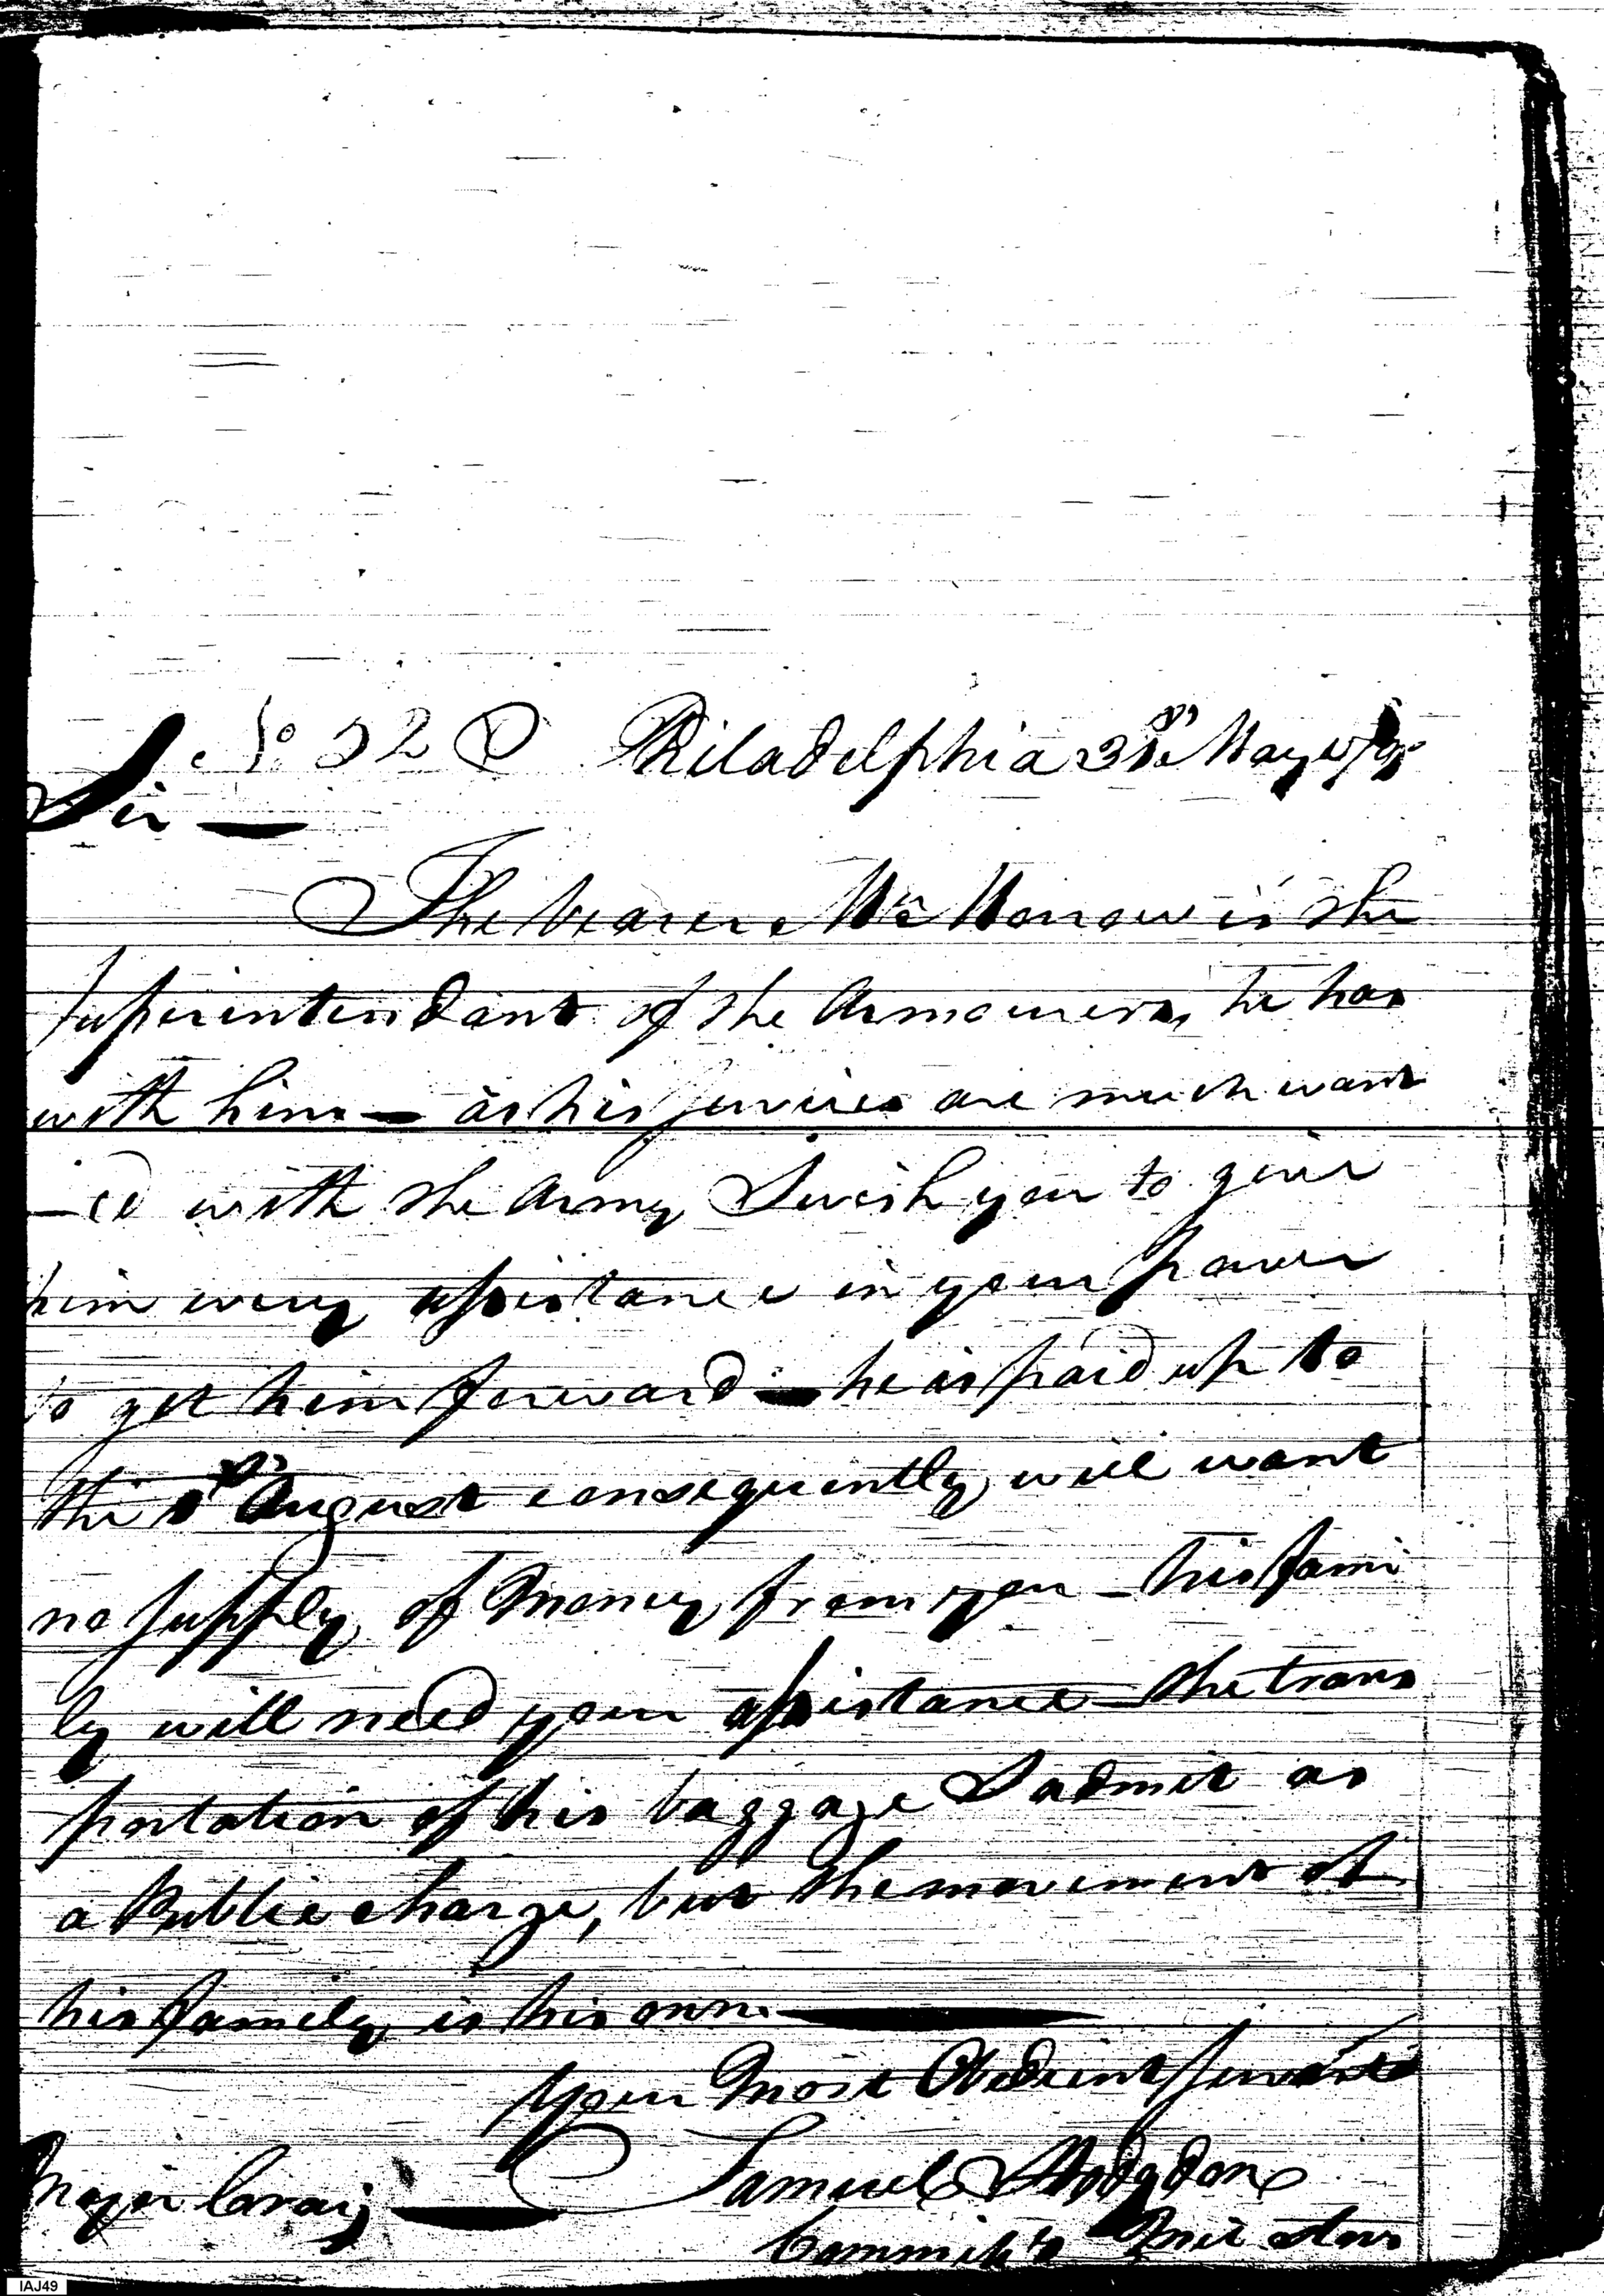 No 32 Philadelphia 31st May
Sir —
The bearer Mr Morrow is the
Superintendant of the Armourers, he has
with him — as his services are much want
—ed with the Army I wish you to give
him every assistance in your power
to get him forward — he is paid up to
the 1st August consequently will want
no supply of Money from you — his fami
ly will need your assistance — the trans
portation of his baggage I admit as
a Public charge, but the movement of
his family is his own. —
Your Most Obedient Servant
Samuel Hodgdon
Major Craig —
Commiss'y Mil Stors
IAJ49